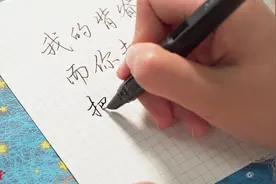 我的背
而你
把